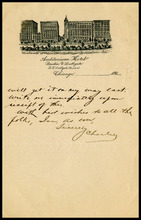 Auditorium Hotel
Chicago
189
will get it on my way East.
Write me immediately upon
receipt of this.
With best wishes to all the
folks, I am as ever
Sincerely
Charley